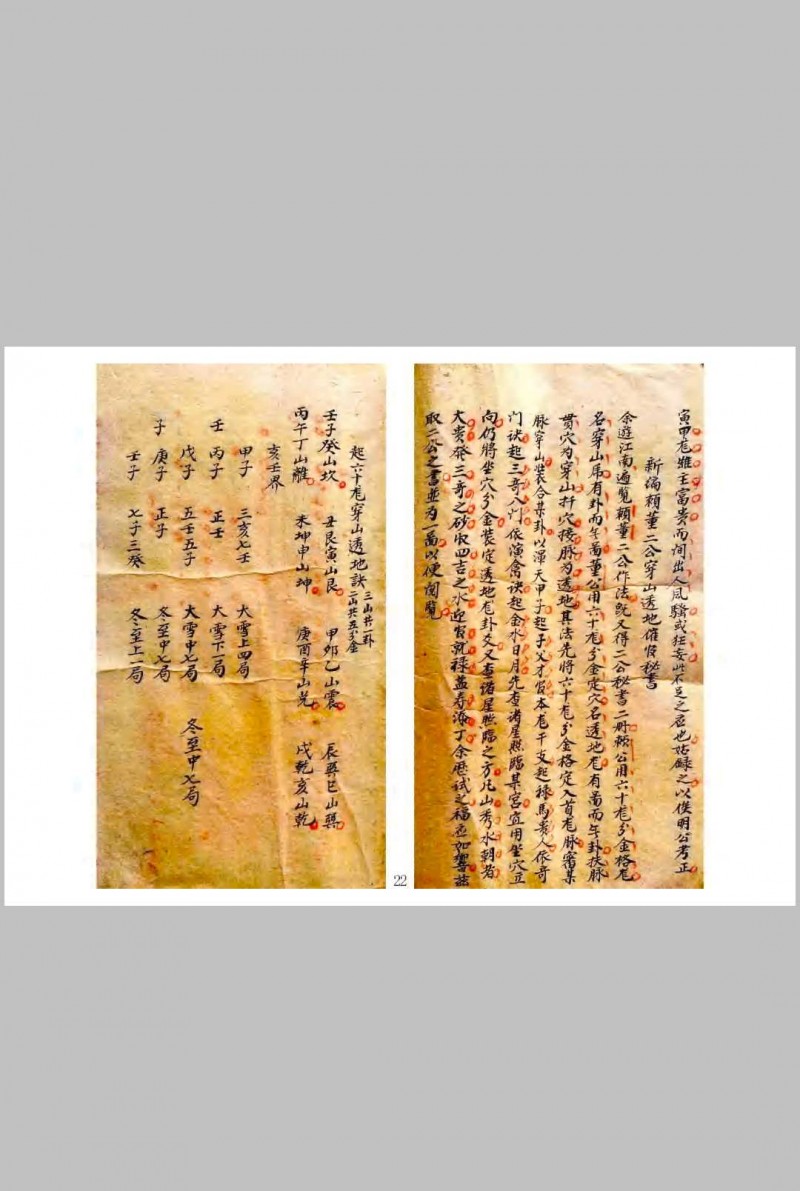 寅甲龙雖主富貴而间出人风騷或狂妄此不足之应也姑録之以俟明公考正
新编賴董二公穿山透地催官秘書
余遊江南遍覽賴董二公作法既又得二公秘書二册賴公用六十龙分金格龙
名穿山虎有卦而无圖董公用六十龙分金定穴名透地龙有圖而无卦扶脉
贯穴为穿山扦穴接脉为透地其法先將六十龙分金格定入首龙脉審某
脉穿山裝合某卦以渾天甲子起子父才官本龙干支起禄馬貴人依奇
门诀起三奇八门依演禽诀起金水日月先查诸星照臨某宮宜用坐穴立
向仍將坐穴分金装定透地龙卦爻又查诸星照臨之方凡山秀水朝者
大贵發三奇之砂收四吉之水迎官就禄益寿添丁余歷試之福应如響兹
取二公之書並为一圖以便阅覽
起六十龙穿山透地訣 三山共一卦 二山共五分金
壬子癸山坎 丑艮寅山艮 甲卯乙山震 辰巽巳山巽
丙午丁山離 未坤申山坤 庚酉辛山兑 戌乾亥山乾
亥壬界
甲子 三亥七壬 大雪上四局
壬 丙子 正壬 大雪下一局
戊子 五壬五子 大雪中七局 冬至中七局
子 庚子 正子 冬至中七局
壬子 七子三癸 冬至上一局
22